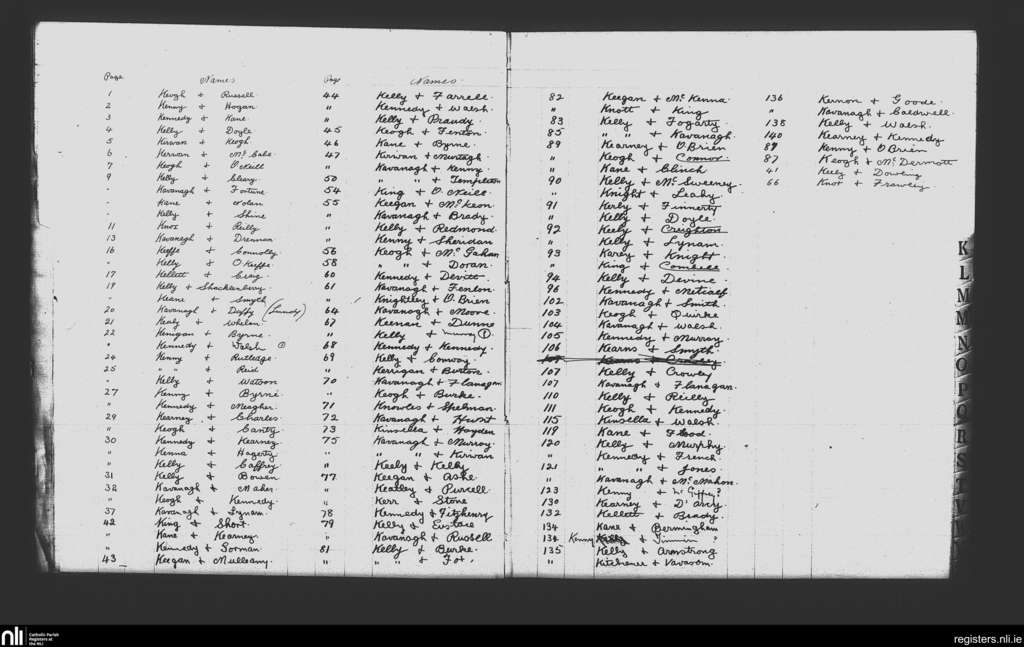 Page Names
1 Keogh + Russell
2 Kenny + Hogan
3 Kennedy + Kane
4 Kelly + Doyle
5 Kirwan + Keogh
6 Kerwan + McCabe
7 Keogh + O'Neill
9 Kelly + Cleary
" Kavanagh + Fortune
" Kane + Nolan
" Kelly + Shine
11 Knox + Reilly
13 Kavanagh + Drennan
16 Keeffe + Connolly
" Kelly + O'Keeffe
17 Kellett + Craig
19 Kelly + Shackleberry
" Keane + Smyth
20 Kavanagh + Duffy (Lundy)
21 Kealy + Whelan
22 Kinigan + Byrne
" Kennedy + Walsh
24 Kenny + Rutledge
25 " " + Reid
" Kelly + Watson
27 Kenny + Byrne
" Kennedy + Meagher
29 Kearney + Charles
" Keogh + Canty
30 Kennedy + Kearney
" Kenna + Hagerty
" Kelly + Caffrey
31 Kelly + Bowen
32 Kavanagh + Maher
" Keogh + Kennedy
37 Kavanagh + Lynam
42 King + Short
" Kane + Kearney
" Kennedy + Gorman
43 Keegan + Mulleamy
Page Names
44 Kelly + Farrell
" Kennedy + Walsh
" Kelly + Praudy
45 Keogh + Fenlon
46 Kane + Byrne
47 Kirwan + Murtagh
" Kavanagh + Kenny
50 " " + Templeton
54 King + O'Neill
55 Keegan + McKeon
" Kavanagh + Brady
" Kelly + Redmond
" Kenny + Sheridan
56 Keogh + McGahan
58 " " + Doran
60 Kennedy + Devitt
61 Kavanagh + Fenlon
" Knightley + O'Brien
64 Kavanagh + Moore
67 Keenan + Dunne
" Kelly + Murray
68 Kennedy + Kennedy
69 Kelly + Conway
" Kerrigan + Burton
70 Kavanagh + Flanagan
" Keogh + Burke
71 Knowles + Spelman
72 Kavanagh + Hurst
73 Kinsella + Hayden
75 Kavanagh + Murray
" " " + Kirwan
" Keely + Kelly
77 Keegan + Ashe
" Kealley + Purcell
" Kerr + Stone
78 Kennedy + Fitzhenry
79 Kelly + Eustace
" Kavanagh + Russell
81 Kelly + Burke
" " " + Fox
82 Keegan + McKenna
" Knott + King
83 Kelly + Fogarty
85 " " + Kavanagh
89 Kearney + O'Brien
" Keogh + Connor
" Kane + Clinch
90 Kelly + McSweeney
" Knight + Leahy
91 Kerly + Finnerty
" Kelly + Doyle
92 Keely + Creighton
" Kelly + Lynam
93 Karey + Knight
" King + Combell
94 Kelly + Devine
96 Kennedy + Metcalf
102 Kavanagh + Smith
103 Keogh + Quirke
104 Kavanagh + Walsh
105 Kennedy + Murray
106 Kearns + Smyth
107 Kearns + Crowley
107 Kelly + Crowley
107 Kavanagh + Flanagan
110 Kelly + Reilly
111 Keogh + Kennedy
115 Kinsella + Walsh
119 Kane + Flood
120 Kelly + Murphy
" Kennedy + French
121 " " + Jones
" Kavanagh + McMahon
123 Kenny + McGiffney?
130 Kearney + D'Arcy
132 Kellett + Brady
134 Kane + Bermingham
134 Kenny Kelly + ?
135 Kelly + Armstrong
" Kitchener + Vavasom
136 Kernon + Goode
" Kavanagh + Caldwell
138 Kelly + Walsh
140 Kearney + Kennedy
89 Kenny + O'Brien
87 Keogh + McDermott
41 Keely + Dowling
66 Knot + Frawley
K
L
M
N
O
P
R
S
nli Catholic Parish Registers at the NLI
registers.nli.ie